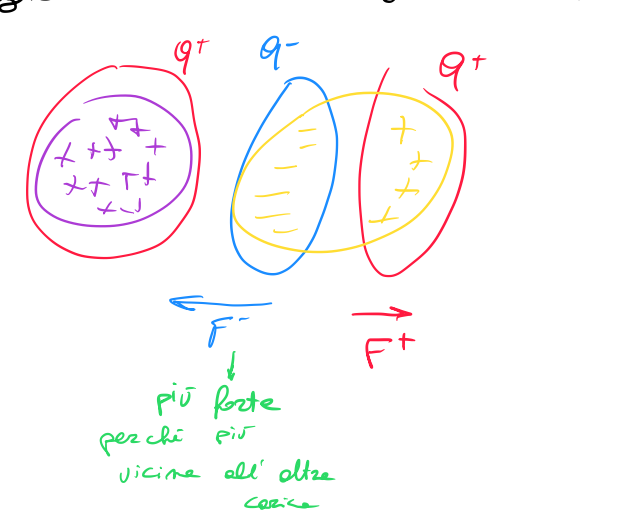 q+ q- q+
F- F+
più forte
perché più
vicina all'altra
carica